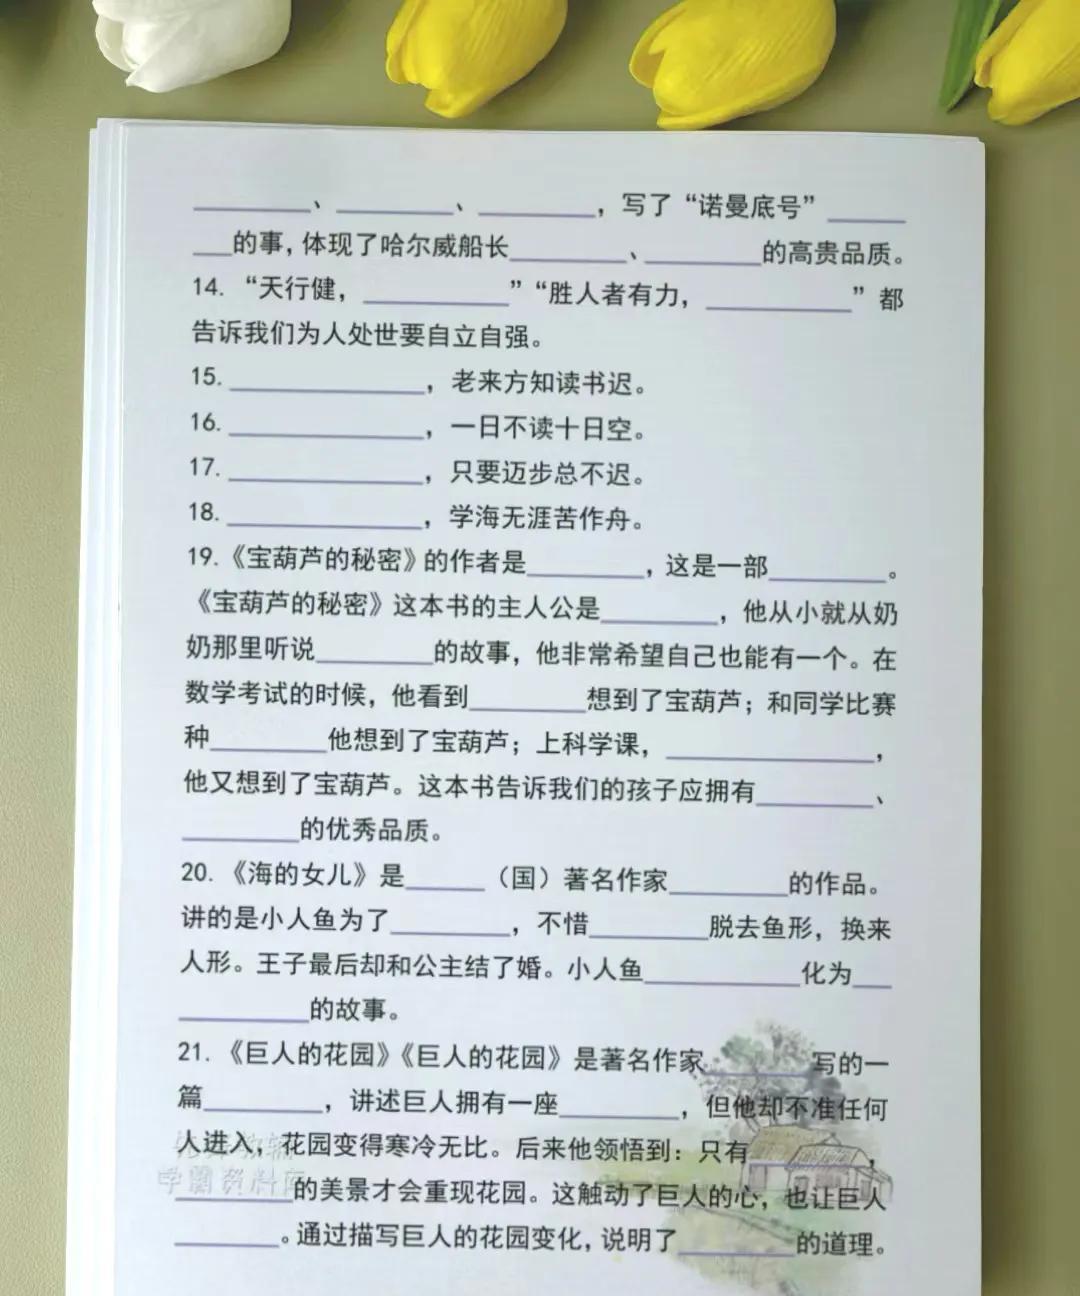 ________、________、________，写了“诺曼底号”______
___的事，体现了哈尔威船长________、________的高贵品质。
14. “天行健，__________”“胜人者有力，__________”都
告诉我们为人处世要自立自强。
15. ______________，老来方知读书迟。
16. ______________，一日不读十日空。
17. ______________，只要迈步总不迟。
18. ______________，学海无涯苦作舟。
19.《宝葫芦的秘密》的作者是________，这是一部________。
《宝葫芦的秘密》这本书的主人公是________，他从小就从奶
奶那里听说________的故事，他非常希望自己也能有一个。在
数学考试的时候，他看到________想到了宝葫芦；和同学比赛
种________他想到了宝葫芦；上科学课，______________，
他又想到了宝葫芦。这本书告诉我们的孩子应拥有________、
________的优秀品质。
20.《海的女儿》是_____（国）著名作家________的作品。
讲的是小人鱼为了________，不惜________脱去鱼形，换来
人形。王子最后却和公主结了婚。小人鱼__________化为___
_________的故事。
21.《巨人的花园》《巨人的花园》是著名作家_______写的一
篇________，讲述巨人拥有一座________，但他却不准任何
人进入，花园变得寒冷无比。后来他领悟到：只有________，
________的美景才会重现花园。这触动了巨人的心，也让巨人
_______。通过描写巨人的花园变化，说明了________的道理。
学霸资料库